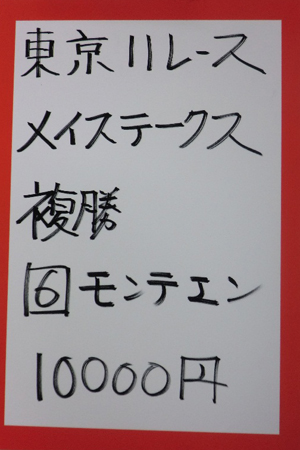 東京11レース
メイステークス
複勝
6 モンテエン
10000円